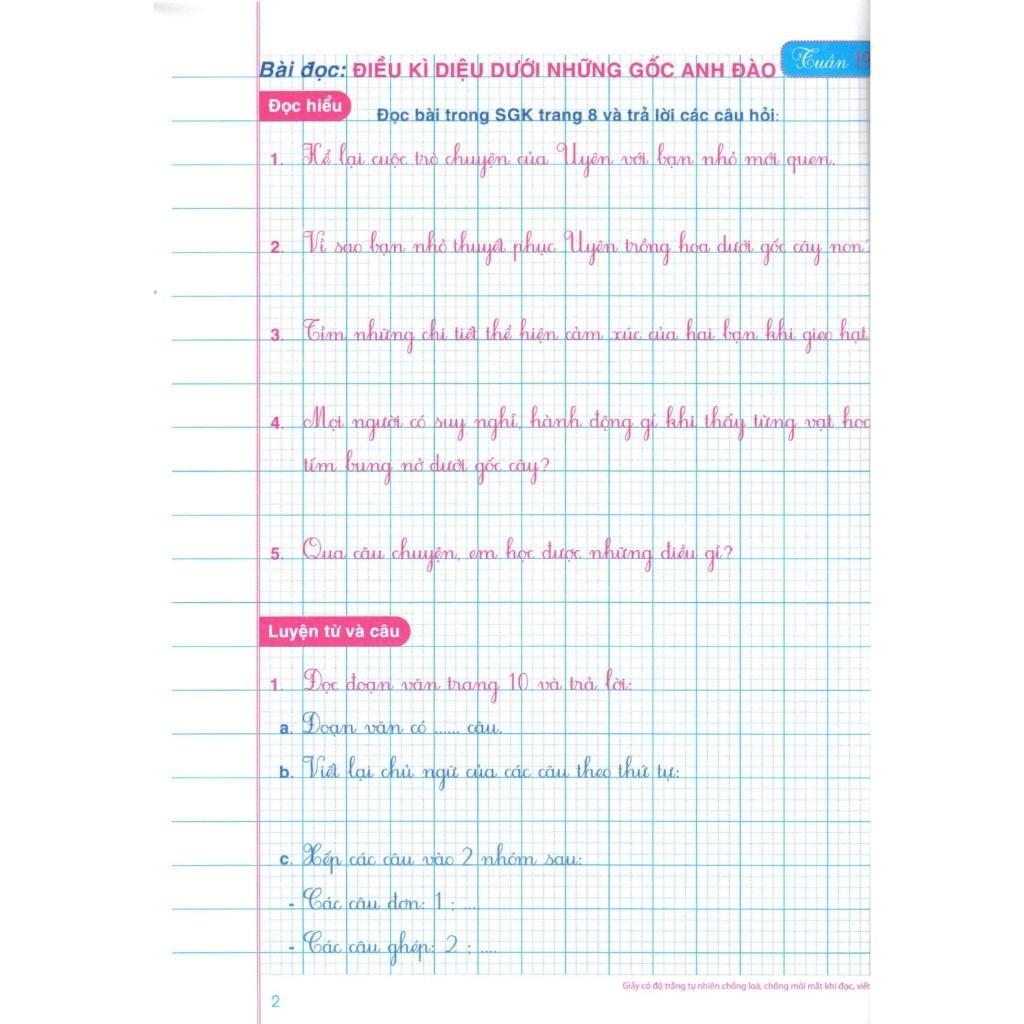 Tuần 19
Bài đọc: ĐIỀU KÌ DIỆU DƯỚI NHỮNG GỐC ANH ĐÀO
Đọc hiểu
Đọc bài trong SGK trang 8 và trả lời các câu hỏi:
1. Kể lại cuộc trò chuyện của Uyên với bạn nhỏ mới quen.
2. Vì sao bạn nhỏ thuyết phục Uyên trồng hoa dưới gốc cây non?
3. Tìm những chi tiết thể hiện cảm xúc của hai bạn khi gieo hạt
4. Mọi người có suy nghĩ, hành động gì khi thấy từng vạt hoa
tím bung nở dưới gốc cây?
5. Qua câu chuyện, em học được những điều gì?
Luyện từ và câu
1. Đọc đoạn văn trang 10 và trả lời:
a. Đoạn văn có ...... câu.
b. Viết lại chủ ngữ của các câu theo thứ tự:
c. Xếp các câu vào 2 nhóm sau:
- Các câu đơn: 1 ; ....
- Các câu ghép: 2 ; ....
Giấy có độ trắng tự nhiên chống loá, chống mỏi mắt khi đọc, viết
2